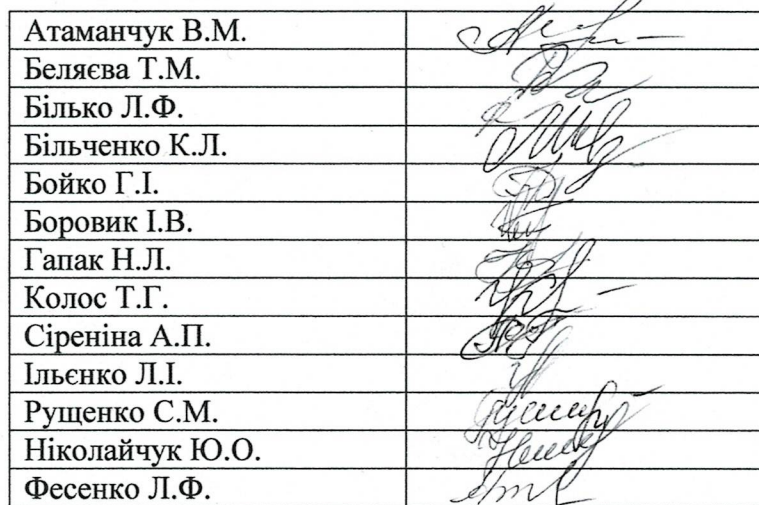 Атаманчук В.М.
Беляєва Т.М.
Білько Л.Ф.
Більченко К.Л.
Бойко Г.І.
Боровик І.В.
Гапак Н.Л.
Колос Т.Г.
Сіреніна А.П.
Ільєнко Л.І.
Рущенко С.М.
Ніколайчук Ю.О.
Фесенко Л.Ф.